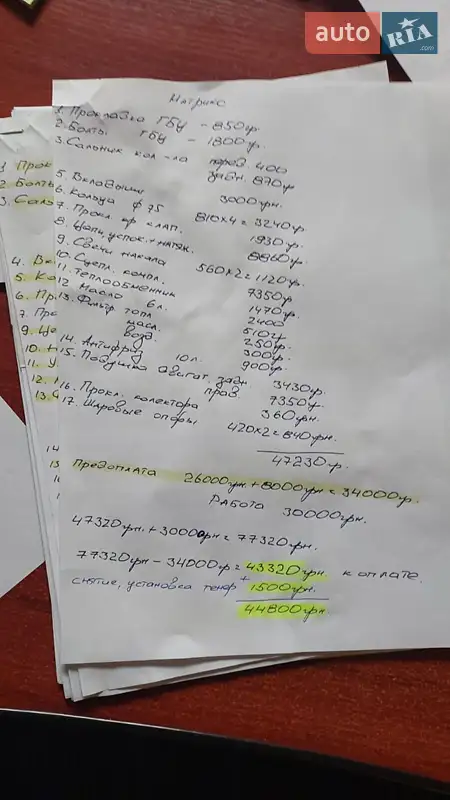 auto RIA .com
Матрикс
1. Прокладка ГБЦ - 850гр.
2. Болты ГБЦ - 1800гр.
3. Сальник кол-ла перед. 400
задн. 870гр
5. Вкладыши 3000грн.
6. Кольца ф 75 810х4 = 3240гр.
7. Прокл. кр клап. 1930гр.
8. Цепи, успок. + натяж. 8860гр.
9. Свечи накала 560х2 = 1120гр.
10. Сцепл. компл. 7350гр.
11. Теплообменник 1470гр.
12. Масло 6л. 2400
13. Фильтр топл 510гр
масл. 250гр.
возд. 300гр.
14. Антифриз 10л. 900гр.
15. Подушка двигат. задн. 3430гр.
прав. 7350гр.
16. Прокл. колектора 360грн.
17. Шаровые опоры 420х2 = 840грн.
47230гр.
Предоплата 26000грн. + 8000грн = 34000гр.
Работа 30000грн.
47320грн. + 30000грн = 77320грн.
77320грн - 34000гр = 43320грн. к оплате.
снятие, установка + 1500грн.
44800грн.
1. Прок
2. Болты
3. Саль